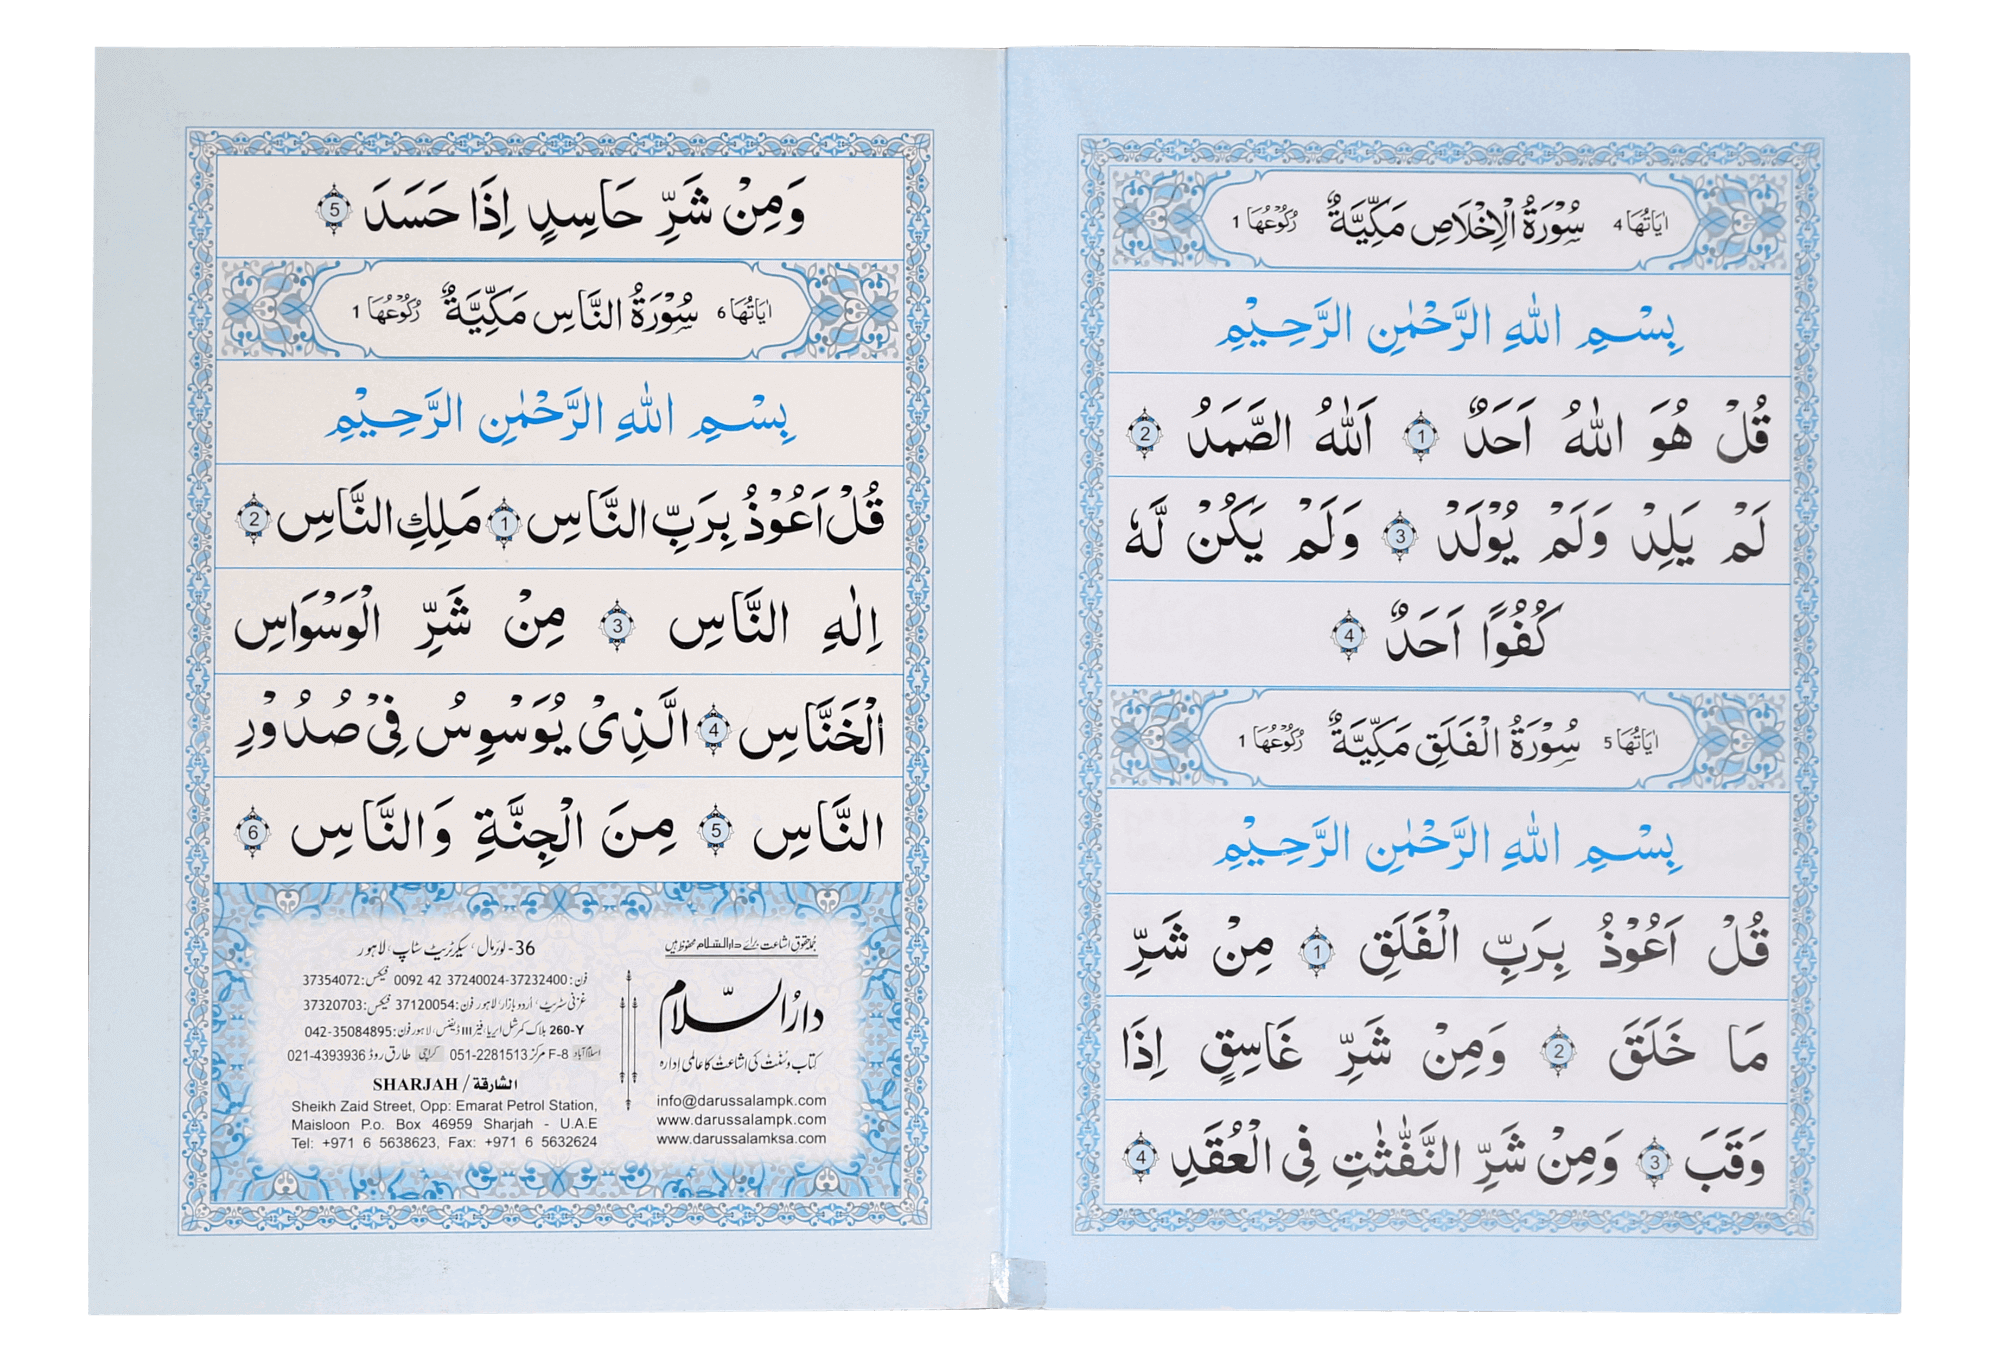 اٰيَاتُهَا 4 سُوْرَةُ الْاِخْلَاصِ مَكِّيَّةٌ رُكُوْعُهَا 1
بِسْمِ اللّٰهِ الرَّحْمٰنِ الرَّحِيْمِ
قُلْ هُوَ اللّٰهُ اَحَدٌ 1 اَللّٰهُ الصَّمَدُ 2
لَمْ يَلِدْ وَلَمْ يُوْلَدْ 3 وَلَمْ يَكُنْ لَّهٗ
كُفُوًا اَحَدٌ 4
اٰيَاتُهَا 5 سُوْرَةُ الْفَلَقِ مَكِّيَّةٌ رُكُوْعُهَا 1
بِسْمِ اللّٰهِ الرَّحْمٰنِ الرَّحِيْمِ
قُلْ اَعُوْذُ بِرَبِّ الْفَلَقِ 1 مِنْ شَرِّ
مَا خَلَقَ 2 وَمِنْ شَرِّ غَاسِقٍ اِذَا
وَقَبَ 3 وَمِنْ شَرِّ النَّفّٰثٰتِ فِى الْعُقَدِ 4
وَمِنْ شَرِّ حَاسِدٍ اِذَا حَسَدَ 5
اٰيَاتُهَا 6 سُوْرَةُ النَّاسِ مَكِّيَّةٌ رُكُوْعُهَا 1
بِسْمِ اللّٰهِ الرَّحْمٰنِ الرَّحِيْمِ
قُلْ اَعُوْذُ بِرَبِّ النَّاسِ 1 مَلِكِ النَّاسِ 2
اِلٰهِ النَّاسِ 3 مِنْ شَرِّ الْوَسْوَاسِ
الْخَنَّاسِ 4 الَّذِىْ يُوَسْوِسُ فِىْ صُدُوْرِ
النَّاسِ 5 مِنَ الْجِنَّةِ وَالنَّاسِ 6
جملہ حقوق اشاعت برائے دارالسلام محفوظ ہیں
دارُالسّلام
کتاب و سنت کی اشاعت کا عالمی ادارہ
info@darussalampk.com
www.darussalampk.com
www.darussalamksa.com
36- لوئرمال، سیکرٹریٹ سٹاپ، لاہور
فون: 37232400-37240024 42 0092 فیکس: 37354072
غزنی سٹریٹ، اُردو بازار لاہور فون: 37120054 فیکس: 37320703
260-Y بلاک کمرشل ایریا، فیز III ڈیفنس، لاہور فون: 042-35084895
اسلام آباد F-8 مرکز 051-2281513 کراچی طارق روڈ 021-4393936
SHARJAH / الشارقة
Sheikh Zaid Street, Opp: Emarat Petrol Station,
Maisloon P.o. Box 46959 Sharjah - U.A.E
Tel: +971 6 5638623, Fax: +971 6 5632624